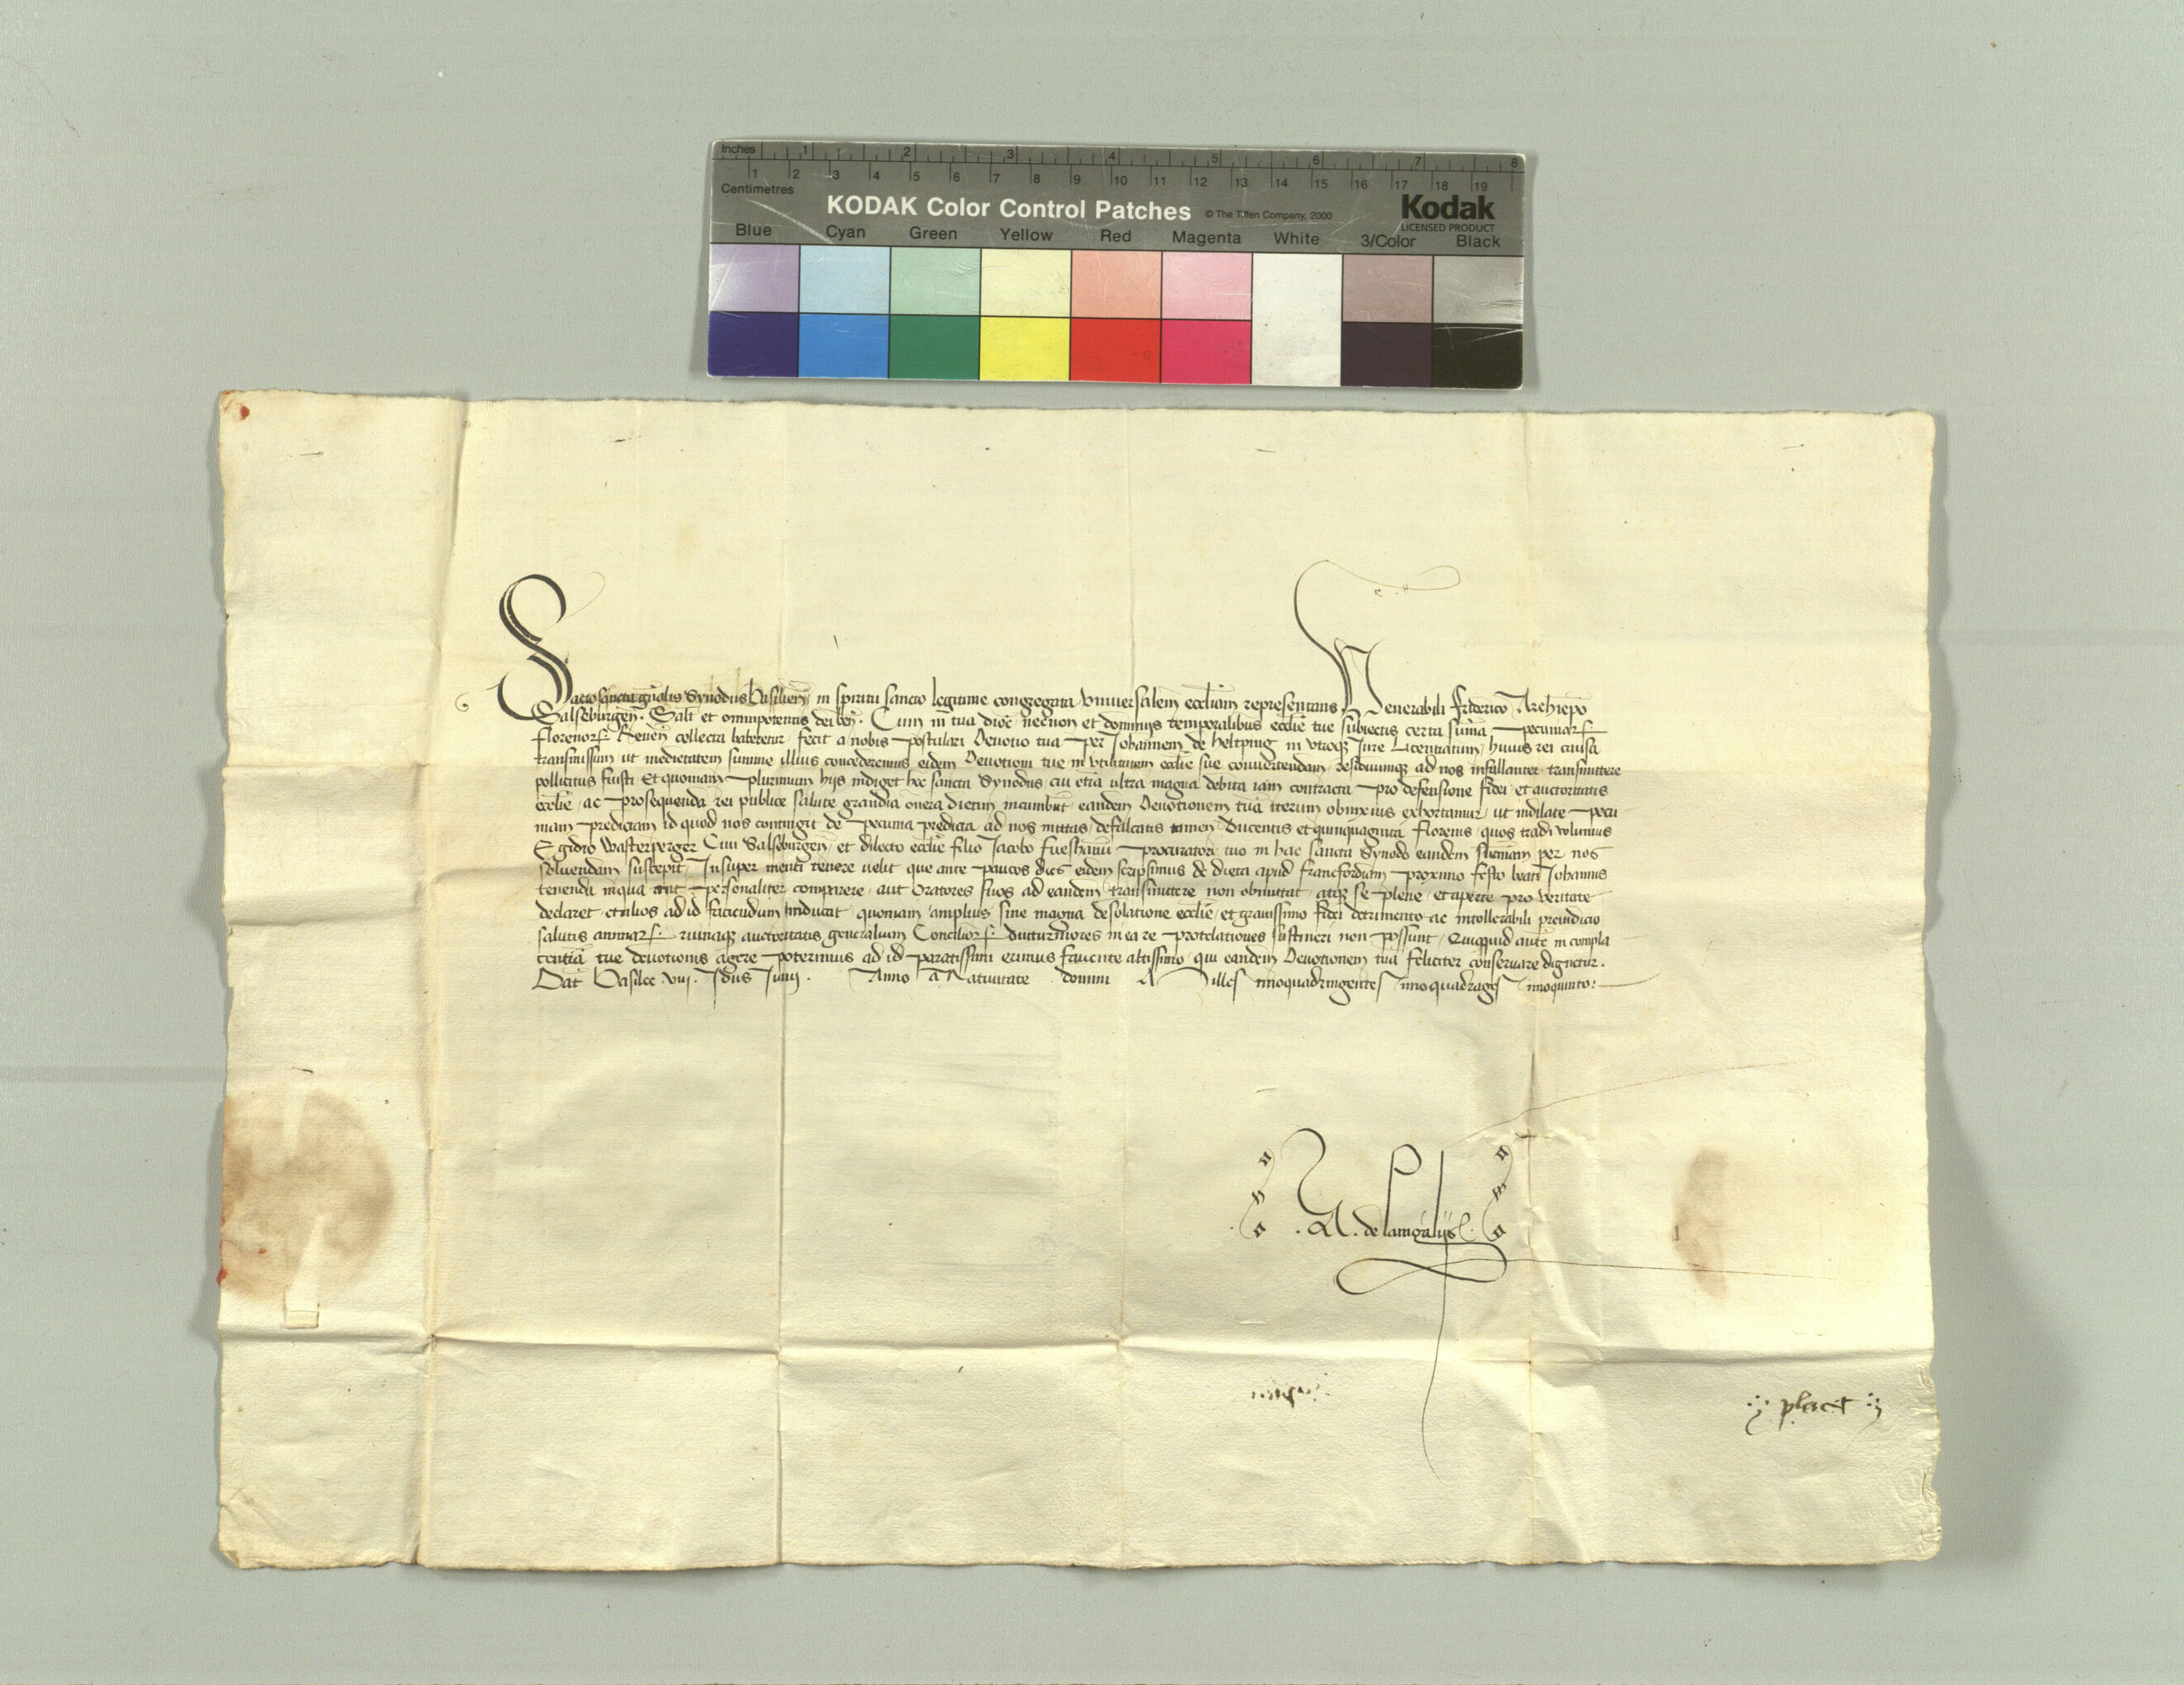 Inches 1 2 3 4 5 6 7 8
1 2 3 4 5 6 7 8 9 10 11 12 13 14 15 16 17 18 19
Centimetres
KODAK Color Control Patches © The Tiffen Company, 2000 Kodak
LICENSED PRODUCT
Blue Cyan Green Yellow Red Magenta White 3/Color Black
Sacrosancta gn̄alis Synodus Basilien̄ in spiritu sancto legitime congregata vniuersalem eccliam̄ representans Venerabili friderico Archiep̄o
Salseburgen̄. Salt̄ et omnipotentis dei ben̄. Cum in tua dioc̄ necnon et dominijs temporalibus ecclie̅ tue subiectis certa sum̄a pecuniar
florenor Renen̄ collecta haberetur fecit a nobis postulari Deuotio tua per Johannem de heltpnig in vtroqꝫ Jure Licentiatum huius rei causa
transmissum ut medietatem summe illius concederemus eidem Deuotioni tue in vtilitatem ecclie̅ sue conuertendam residuumqꝫ ad nos infallanter transmittere
pollicitus fuisti Et quoniam plurimum hijs indiget hec sancta Synodus cui etiā ultra magna debita iam contracta pro defensione fidei et auctoritatis
ecclie̅ ac prosequenda rei publice salute grandia onera dietim incumbūt eandem Deuotionem tuā iterum obnixius exhortamur ut indilate pecu
niam predictam id quod nos contingit de pecunia predicta ad nos mittas defalcatis tamen Ducentis et quinquaginta florenis quos tradi volumus
Egidio wasterperger Ciui Salseburgen̄ et dilecto ecclie̅ filio Jacobo procuratori tuo in hac sancta Synodo eandem sum̄am per nos
soluendam suscepit Insuper menti tenere uelit que ante paucos dies eidem scripsimus de dieta apud francfordiam proximo festo beati Johannis
tenenda in qua aut personaliter comparere aut oratores suos ad eandem transmittere non obmittat atqꝫ se plene et aperte pro veritate
declaret et alios ad id faciendum inducat quoniam amplius sine magna desolatione ecclie̅ et grauissimo fidei detrimento ac intollerabili preiudicio
salutis animar ruinaqꝫ auctoritatis generalium Concilior diuturniores in ea re protelationes sustineri non possunt Quicquid autē in compla
centiā tue deuotionis agere poterimus ad id paratissimi erimus fauente altissimo qui eandem Deuotionem tuā feliciter conseruare dignetur.
Dat̄ Basilee viij. Idus Junij. Anno a Natiuitate domini Milles imoquadringentes imoquadrages imoquinto
.A. de lanigalijs
placet